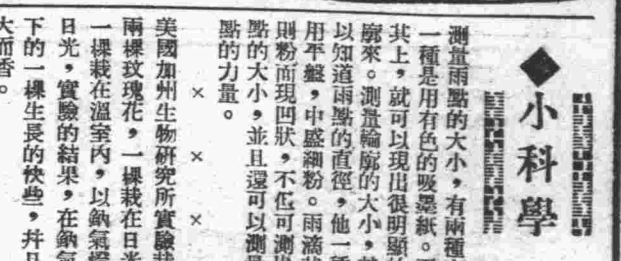 ◆小科學
測量雨點的大小，有兩種
一種是用有色的吸墨紙。
其上，就可以現出很明顯
廓來。測量輪廓的大小，
以知道雨點的直徑，他一種
用平盤，中盛細粉。雨滴
則粉面現凹狀，不但可測
點的大小，並且還可以測量
點的力量。
× × ×
美國加州生物研究所實驗栽
兩棵玫瑰花，一棵栽在日光
一棵栽在溫室內，以鈉氣燈
日光，實驗的結果，在鈉氣
下的一棵生長的快些，幷且
大而香。